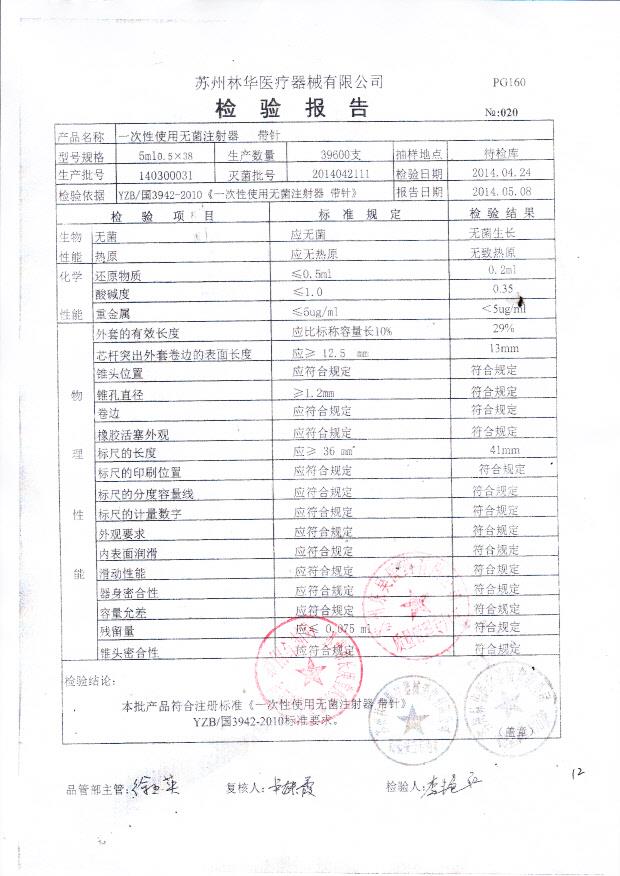 苏州林华医疗器械有限公司 PG160
检验报告 №:020
产品名称 一次性使用无菌注射器 带针
型号规格 5ml0.5×38 生产数量 39600支 抽样地点 待检库
生产批号 140300031 灭菌批号 2014042111 检验日期 2014.04.24
检验依据 YZB/国3942-2010《一次性使用无菌注射器 带针》 报告日期 2014.05.08
检验项目 标准规定 检验结果
生物 无菌 应无菌 无菌生长
性能 热原 应无热原 无致热原
化学 还原物质 ≤0.5ml 0.2ml
酸碱度 ≤1.0 0.35
性能 重金属 ≤5ug/ml <5ug/ml
外套的有效长度 应比标称容量长10% 29%
芯杆突出外套卷边的表面长度 应≥ 12.5 mm 13mm
锥头位置 应符合规定 符合规定
物 锥孔直径 ≥1.2mm 符合规定
卷边 应符合规定 符合规定
橡胶活塞外观 应符合规定 符合规定
理 标尺的长度 应≥ 36 mm 41mm
标尺的印刷位置 应符合规定 符合规定
标尺的分度容量线 应符合规定 符合规定
性 标尺的计量数字 应符合规定 符合规定
外观要求 应符合规定 符合规定
内表面润滑 应符合规定 符合规定
能 滑动性能 应符合规定 符合规定
器身密合性 应符合规定 符合规定
容量允差 应符合规定 符合规定
残留量 应≤ 0.075 ml 符合规定
锥头密合性 应符合规定 符合规定
检验结论:
本批产品符合注册标准《一次性使用无菌注射器 带针》
YZB/国3942-2010标准要求。
(盖章)
12
品管部主管: 复核人: 检验人: